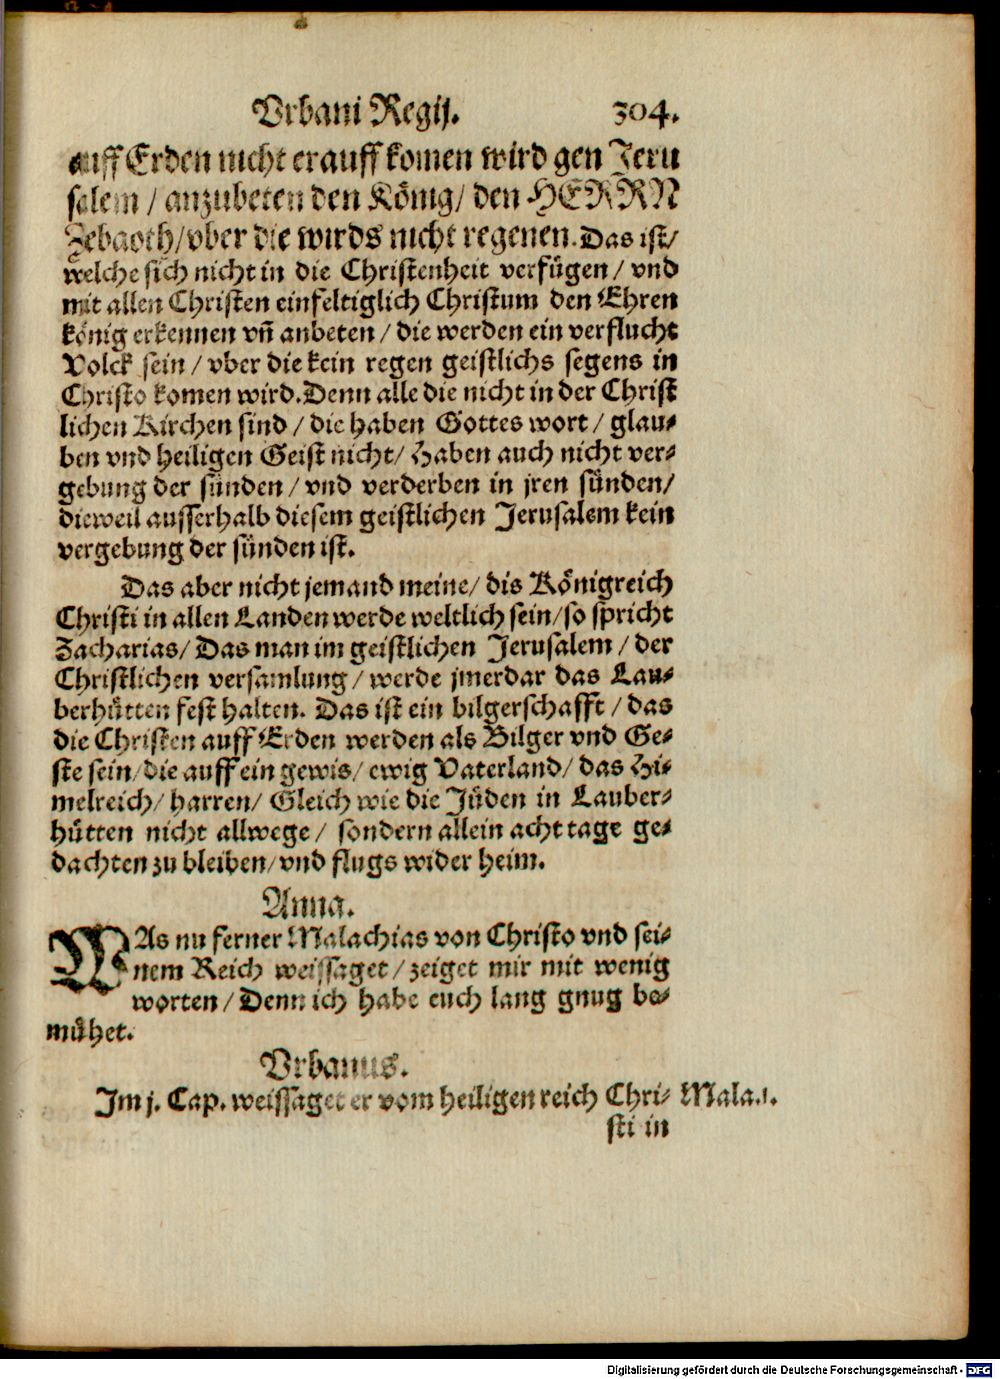 Vrbani Regij. 304.
auff Erden nicht erauff komen wird gen Jeru
salem / anzubeten den König / den HERRN
Zebaoth / vber die wirds nicht regenen. Das ist /
welche sich nicht in die Christenheit verfügen / vnd
mit allen Christen einfeltiglich Christum den Ehren
könig erkennen vñ anbeten / die werden ein verflucht
Volck sein / vber die kein regen geistlichs segens in
Christo komen wird. Denn alle die nicht in der Christ
lichen Kirchen sind / die haben Gottes wort / glau-
ben vnd heiligen Geist nicht / Haben auch nicht ver-
gebung der sünden / vnd verderben in jren sünden /
dieweil ausserhalb diesem geistlichen Jerusalem kein
vergebung der sünden ist.
Das aber nicht jemand meine / dis Königreich
Christi in allen Landen werde weltlich sein / so spricht
Zacharias / Das man im geistlichen Jerusalem / der
Christlichen versamlung / werde jmerdar das Lau-
berhütten fest halten. Das ist ein bilgerschafft / das
die Christen auff Erden werden als Bilger vnd Ge-
ste sein / die auff ein gewis / ewig Vaterland / das Hi-
melreich / harren / Gleich wie die Jüden in Lauber-
hütten nicht allwege / sondern allein acht tage ge-
dachten zu bleiben / vnd flugs wider heim.
Anna.
WAs nu ferner Malachias von Christo vnd sei-
nem Reich weissaget / zeiget mir mit wenig
worten / Denn ich habe euch lang gnug be-
mühet.
Vrbanus.
Im j. Cap. weissaget er vom heiligen reich Chri- Mala.1.
sti in
Digitalisierung gefördert durch die Deutsche Forschungsgemeinschaft - DFG